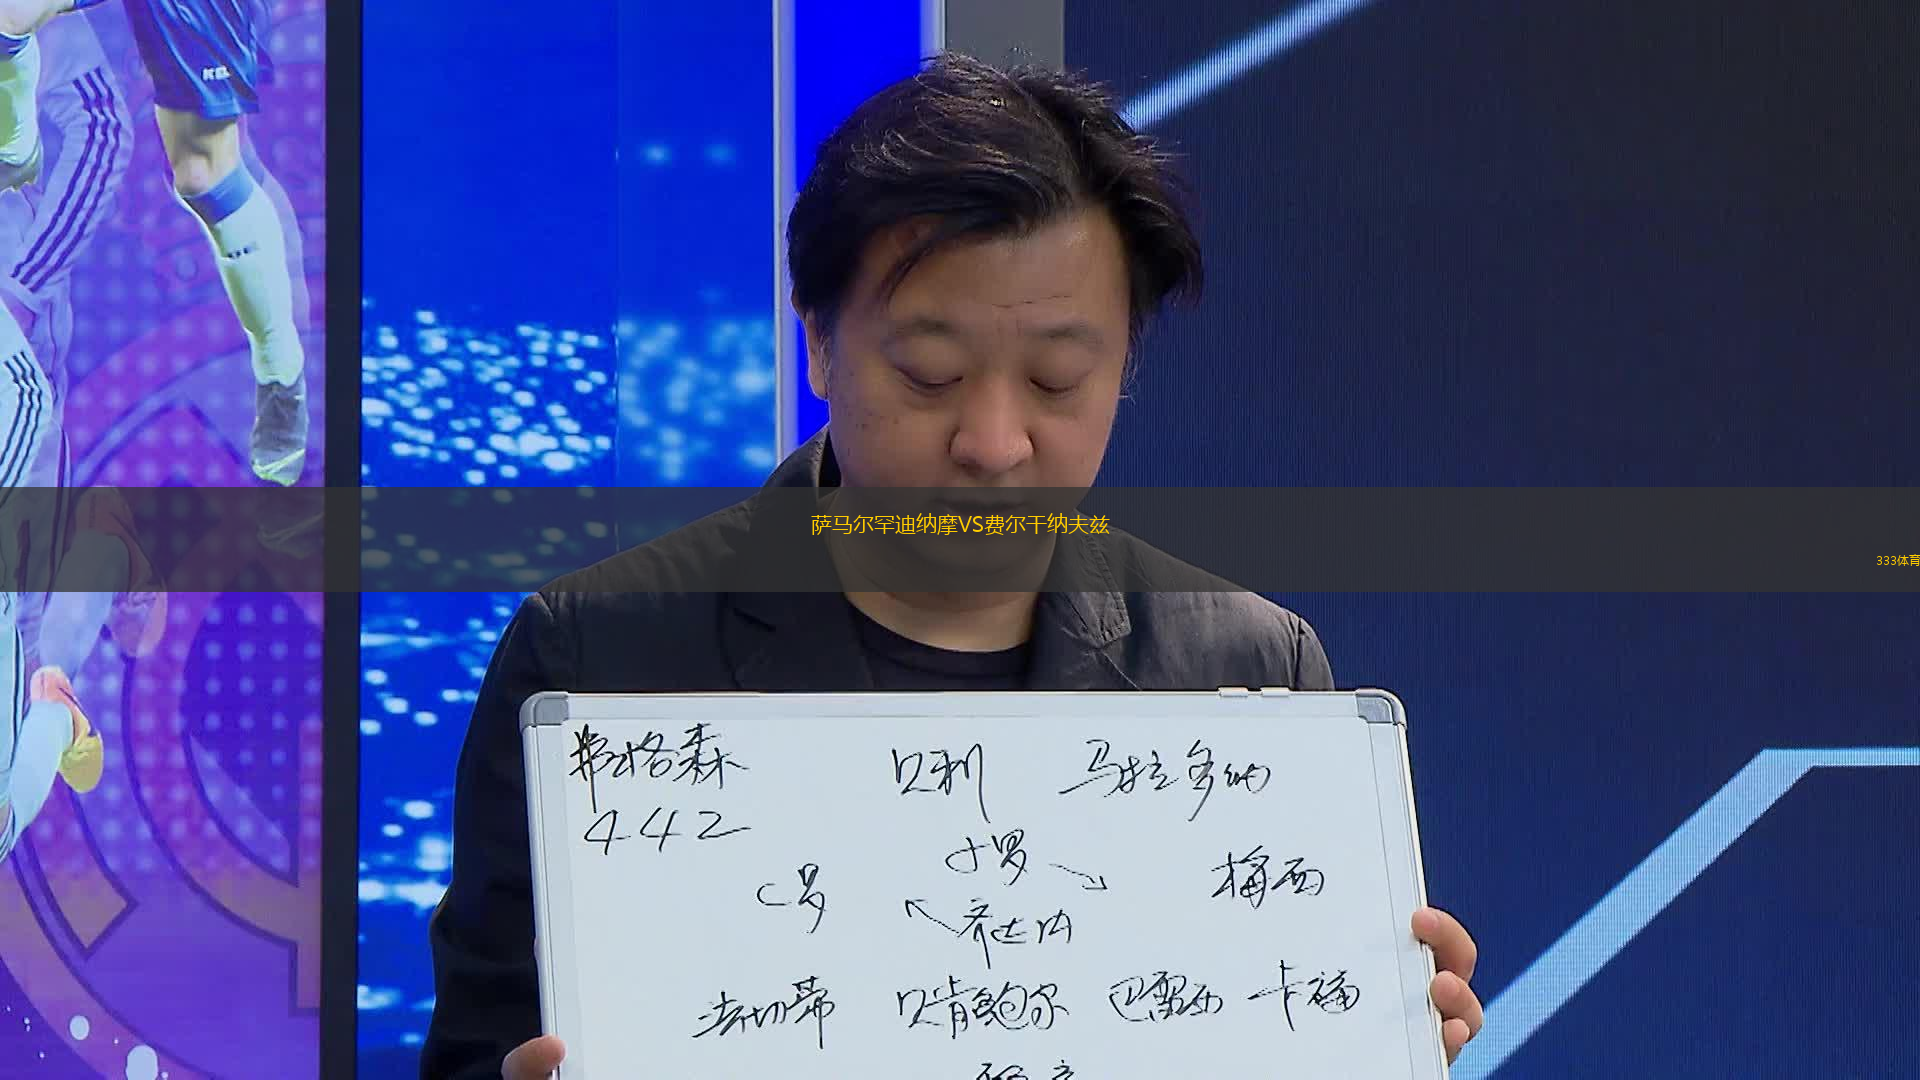 KE
萨马尔罕迪纳摩VS费尔干纳夫兹
333体育
弗格森 贝利 马拉多纳
442
小罗
C罗 梅西
齐达内
法切蒂 贝肯鲍尔 巴雷西 卡福